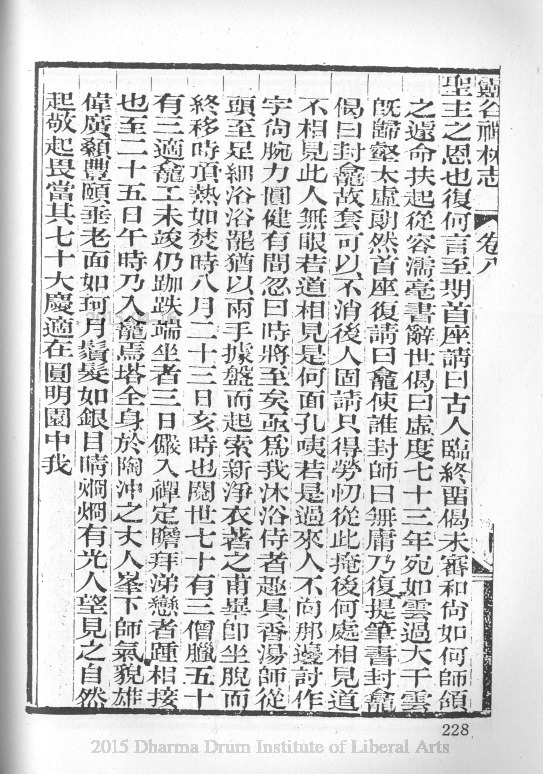 靈谷禪林志　卷八
聖主之恩也復何言至期首座請曰古人臨終畱偈未審和尙如何師頷
之遽命扶起從容濡毫書辭世偈曰虛度七十三年宛如雲過大千雲
旣歸壑太虛朗然首座復請曰龕使誰封師曰無庸乃復提筆書封龕
偈曰封龕故套可以不消後人固請只得勞忉從此掩後何處相見道
不相見此人無眼若道相見是何面孔咦若是過來人不向那邊討作
字尙腕力圓健有間忽曰時將至矣亟爲我沐浴侍者趣具香湯師從
頭至足細浴浴罷猶以兩手據盤而起索新淨衣著之甫畢卽坐脫而
終移時頂熱如焚時八月二十三日亥時也閱世七十有三僧臘五十
有三適龕工未竣仍跏趺端坐者三日儼入禪定瞻拜涕戀者踵相接
也至二十五日午時乃入龕焉塔全身於陶沖之丈人峯下師氣貌雄
偉廣顙豐頤垂老面如珂月鬚髮如銀目睛烱烱有光人望見之自然
起敬起畏當其七十大慶適在圓明園中我
228
2015 Dharma Drum Institute of Liberal Arts